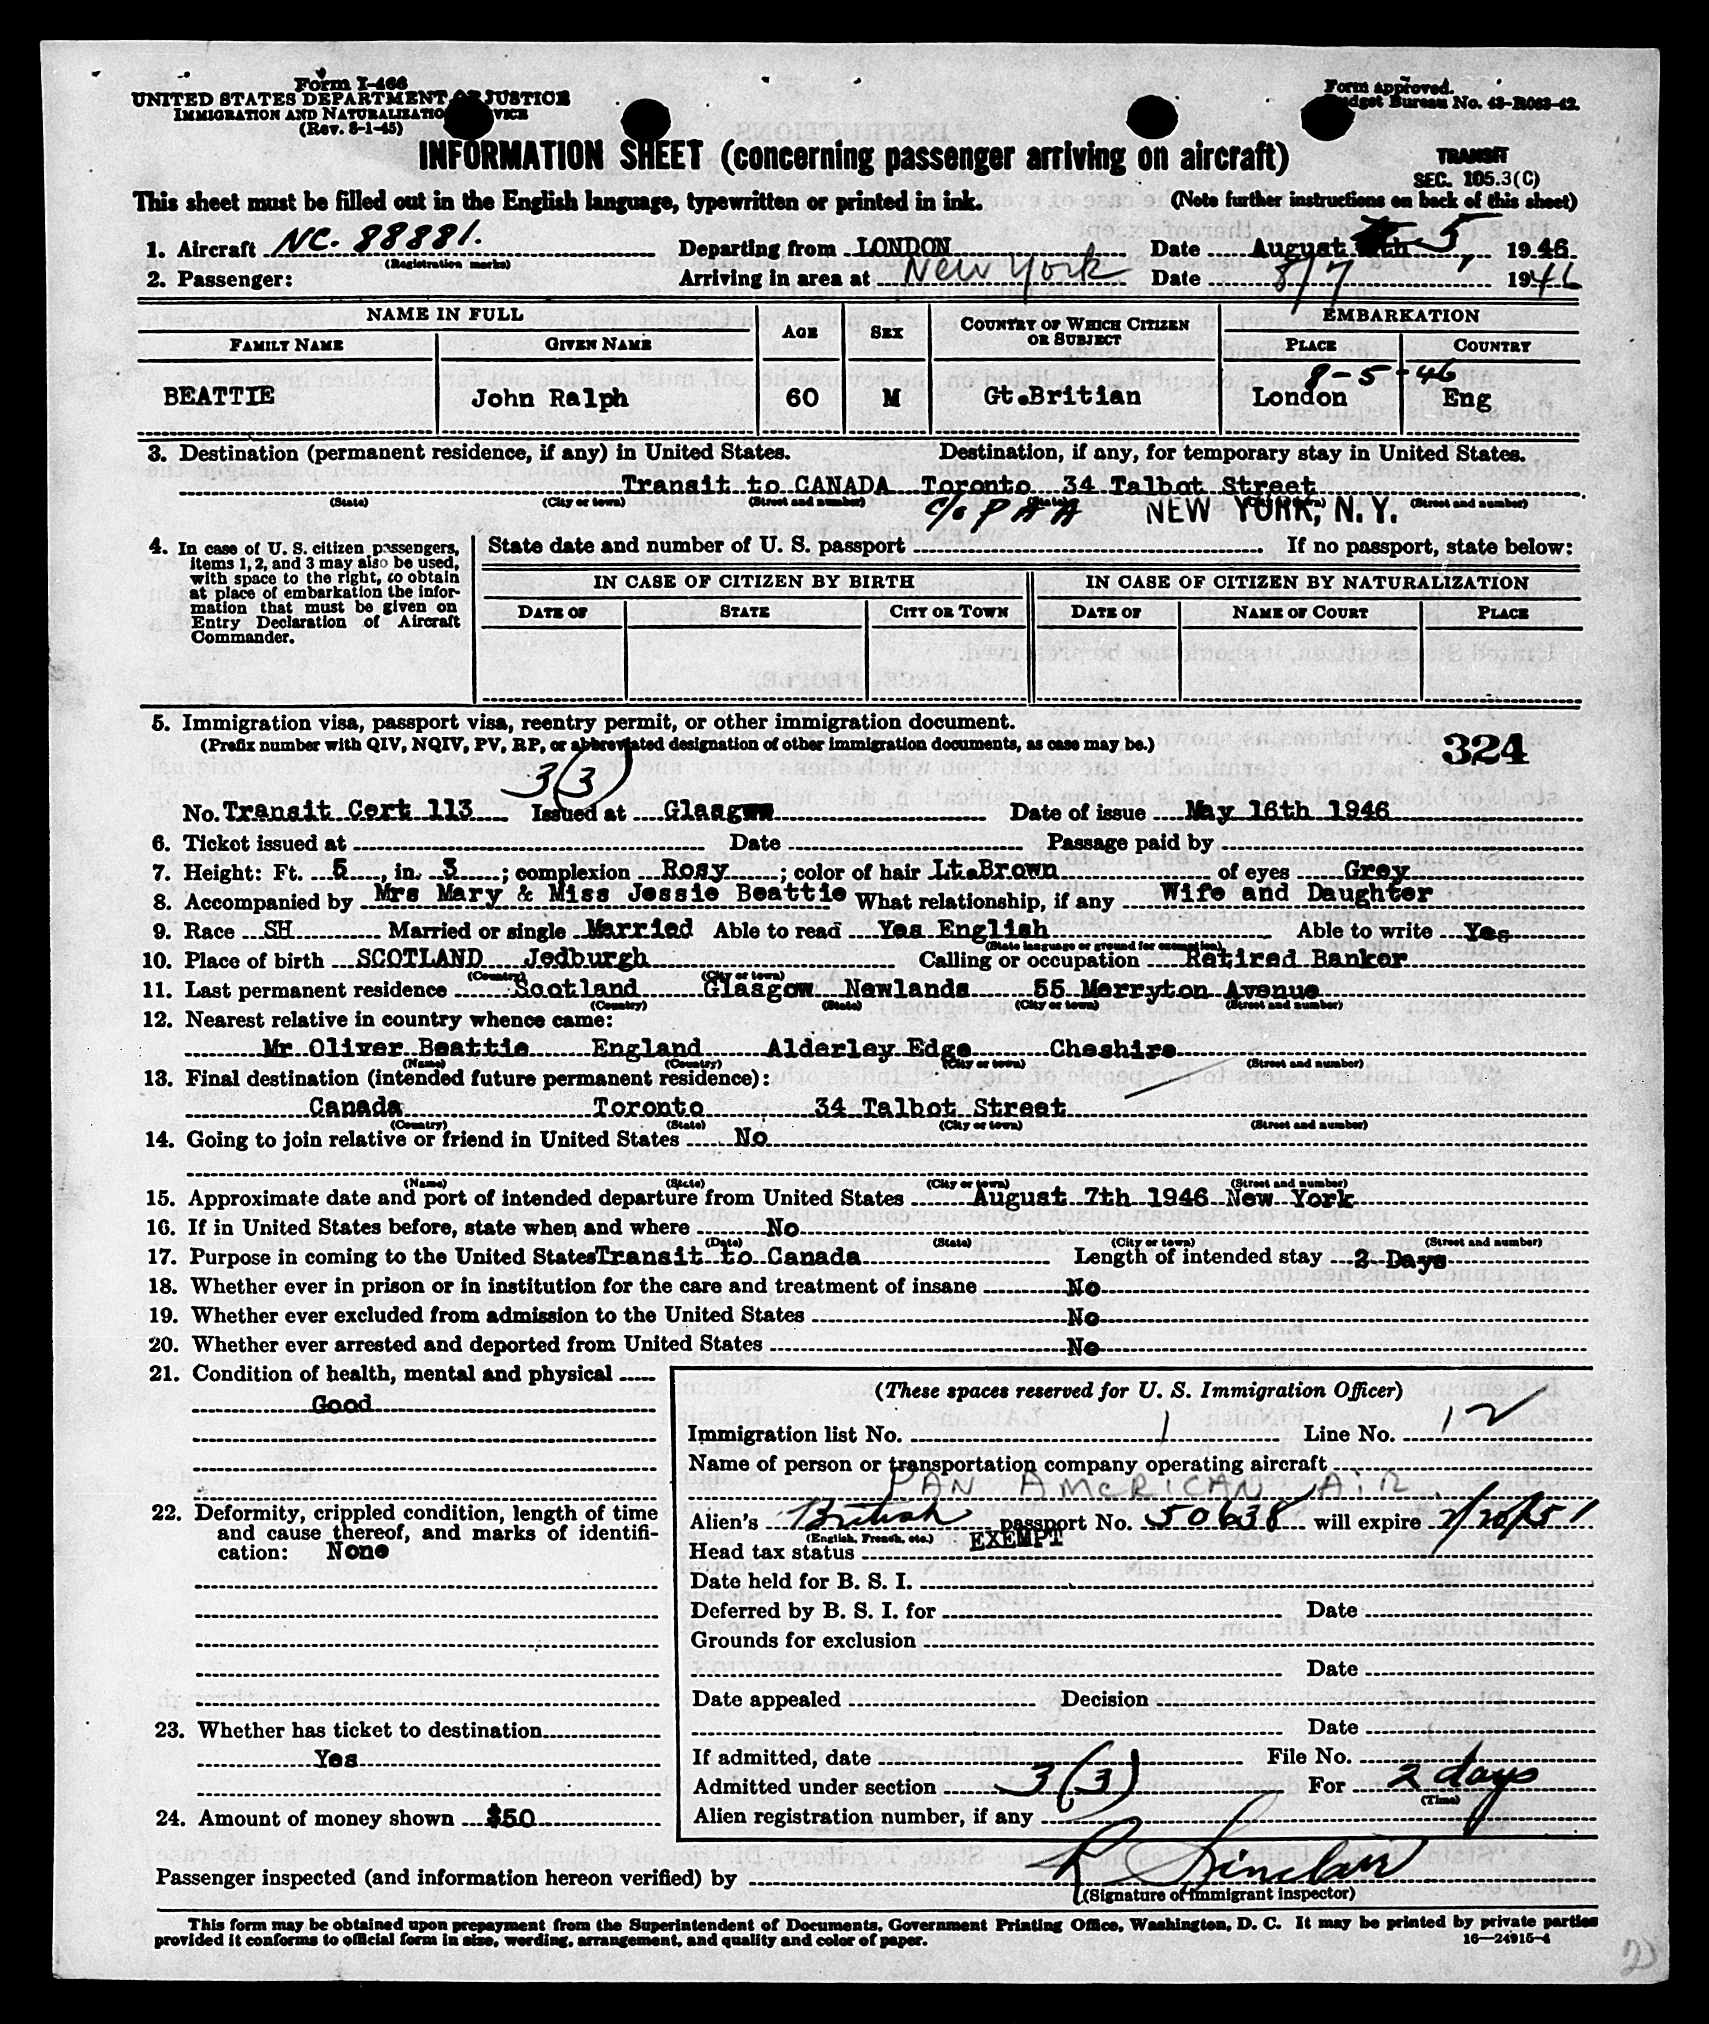 Form I-466
UNITED STATES DEPARTMENT OF JUSTICE
IMMIGRATION AND NATURALIZATION SERVICE
(Rev. 8-1-45)
Form approved.
Budget Bureau No. 43-R063-42.
INFORMATION SHEET (concerning passenger arriving on aircraft)
TRANSIT
SEC. 105.3(C)
This sheet must be filled out in the English language, typewritten or printed in ink. (Note further instructions on back of this sheet)
1. Aircraft NC. 88881. Departing from LONDON Date August 5, 1946.
(Registration marks)
2. Passenger: Arriving in area at New York Date 8/7 1946
NAME IN FULL AGE SEX COUNTRY OF WHICH CITIZEN OR SUBJECT EMBARKATION
FAMILY NAME GIVEN NAME PLACE COUNTRY
8-5-46
BEATTIE John Ralph 60 M Gt.Britian London Eng
3. Destination (permanent residence, if any) in United States. Destination, if any, for temporary stay in United States.
Transit to CANADA Toronto 34 Talbot Street
(State) (City or town) (Street and number) (State) (City or town) (Street and number)
c/o PAA NEW YORK, N.Y.
4. In case of U. S. citizen passengers, items 1, 2, and 3 may also be used, with space to the right, to obtain at place of embarkation the information that must be given on Entry Declaration of Aircraft Commander.
State date and number of U. S. passport If no passport, state below:
IN CASE OF CITIZEN BY BIRTH IN CASE OF CITIZEN BY NATURALIZATION
DATE OF STATE CITY OR TOWN DATE OF NAME OF COURT PLACE
5. Immigration visa, passport visa, reentry permit, or other immigration document.
(Prefix number with QIV, NQIV, PV, RP, or abbreviated designation of other immigration documents, as case may be.) 324
3(3)
No. Transit Cert 113 Issued at Glasgow Date of issue May 16th 1946
6. Ticket issued at Date Passage paid by
7. Height: Ft. 5, in. 3; complexion Rosy; color of hair Lt.Brown of eyes Grey
8. Accompanied by Mrs Mary & Miss Jessie Beattie What relationship, if any Wife and Daughter
9. Race SH Married or single Married Able to read Yes English Able to write Yes
(State language or ground for exemption)
10. Place of birth SCOTLAND Jedburgh Calling or occupation Retired Banker
(Country) (City or town)
11. Last permanent residence Scotland Glasgow Newlands 55 Merryton Avenue
(Country) (State) (City or town) (Street and number)
12. Nearest relative in country whence came:
Mr Oliver Beattie England Alderley Edge Cheshire
(Name) (Country) (City or town) (Street and number)
13. Final destination (intended future permanent residence):
Canada Toronto 34 Talbot Street
(Country) (State) (City or town) (Street and number)
14. Going to join relative or friend in United States No
(Name) (State) (City or town) (Street and number)
15. Approximate date and port of intended departure from United States August 7th 1946 New York
16. If in United States before, state when and where No
(Date) (State) (City or town) (Street and number)
17. Purpose in coming to the United States Transit to Canada Length of intended stay 2 Days
18. Whether ever in prison or in institution for the care and treatment of insane No
19. Whether ever excluded from admission to the United States No
20. Whether ever arrested and deported from United States No
21. Condition of health, mental and physical
Good
22. Deformity, crippled condition, length of time and cause thereof, and marks of identification: None
23. Whether has ticket to destination
Yes
24. Amount of money shown $50
(These spaces reserved for U. S. Immigration Officer)
Immigration list No. 1 Line No. 12
Name of person or transportation company operating aircraft
PAN AMERICAN AIR.
Alien's British passport No. 50638 will expire 2/20/51
(English, French, etc.)
Head tax status EXEMPT
Date held for B. S. I.
Deferred by B. S. I. for Date
Grounds for exclusion
Date
Date appealed Decision
Date
If admitted, date File No.
Admitted under section 3(3) For 2 days
(Time)
Alien registration number, if any
Passenger inspected (and information hereon verified) by R Sinclair
(Signature of immigrant inspector)
This form may be obtained upon prepayment from the Superintendent of Documents, Government Printing Office, Washington, D. C. It may be printed by private parties
provided it conforms to official form in size, wording, arrangement, and quality and color of paper. 16—24915-4